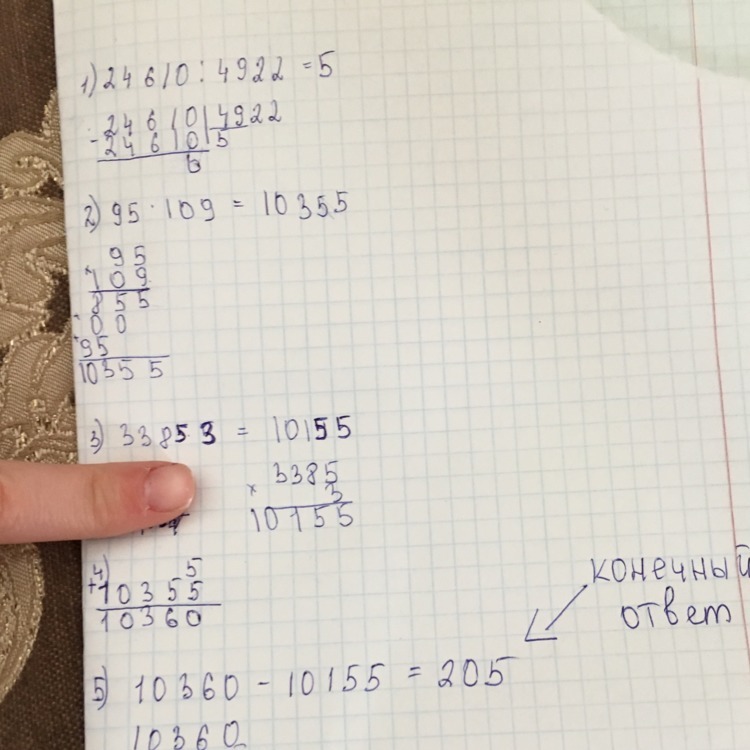 1) 24610 : 4922 = 5
- 24610 | 4922
24610 5
0
2) 95 · 109 = 10355
95
× 109
855
+ 00
+ 95
10355
3) 33853 = 10155
3385
× 3
10155
4) 5
+ 10355
10360
конечный
ответ
5) 10360 - 10155 = 205
10360